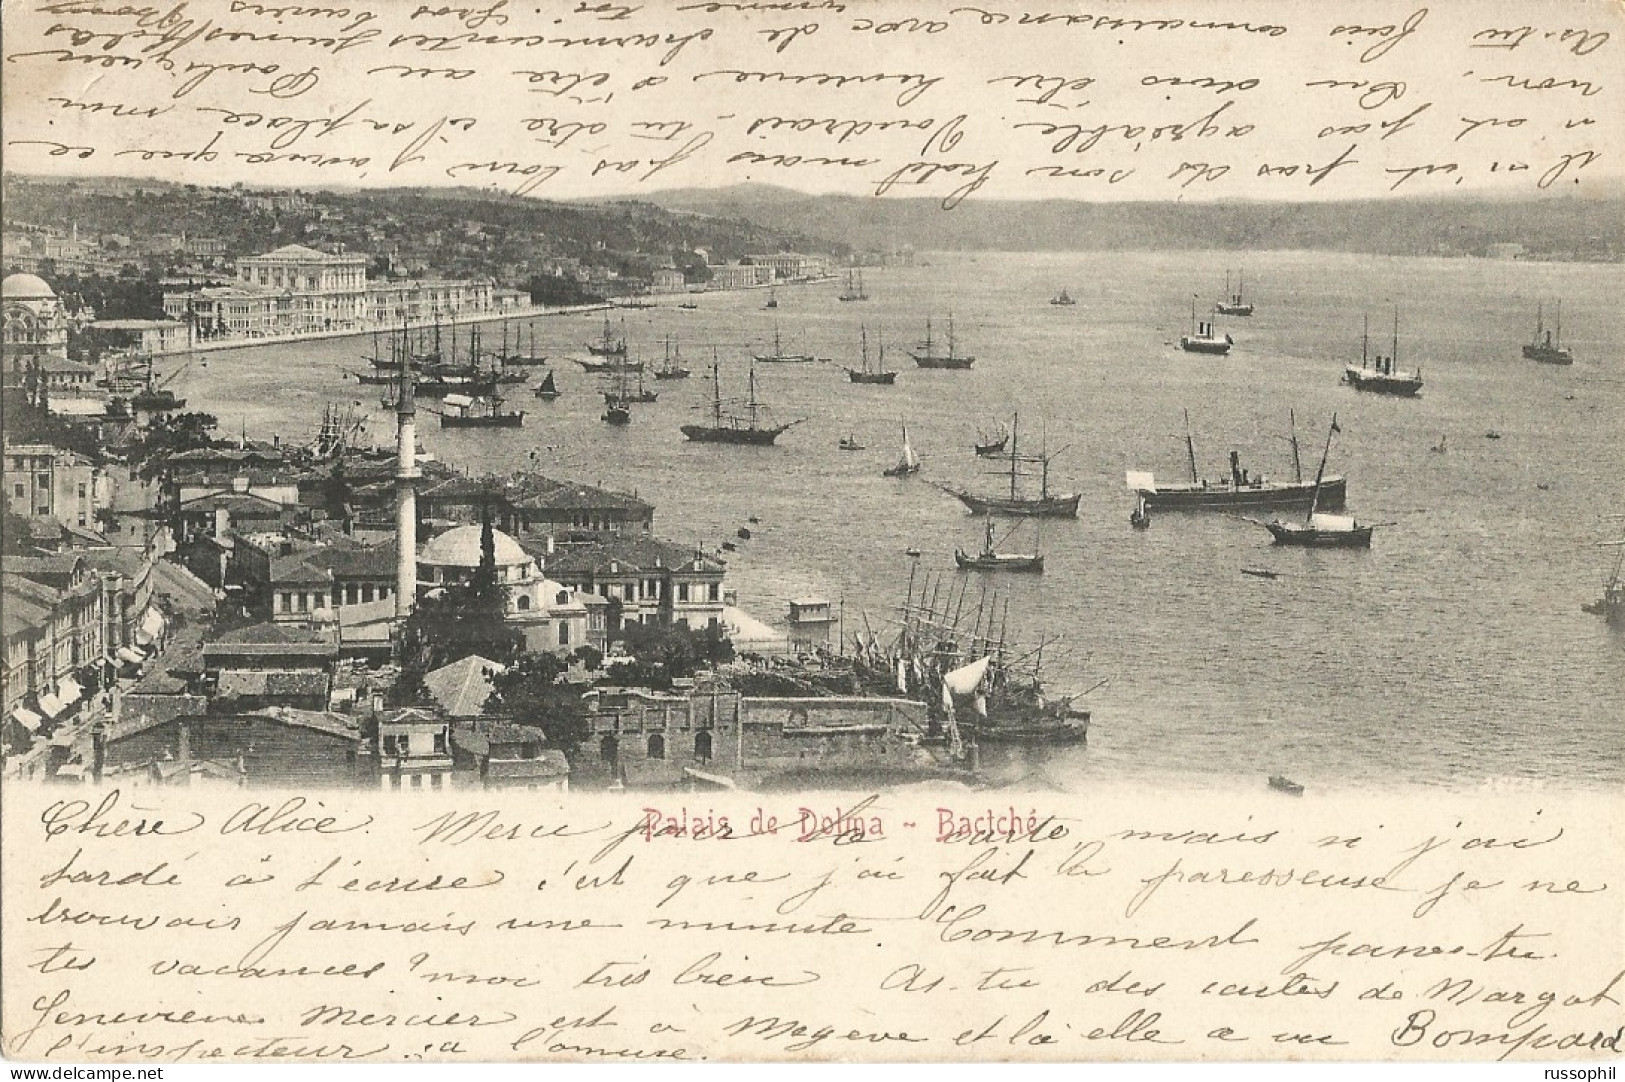 Palais de Dolma ~ Bactché
Chère Alice. Merci pour ta carte, mais si j'ai
tardé à t'écrire c'est que j'ai fait la paresseuse je ne
trouvais jamais une minute. Comment passes-tu
tes vacances? moi très bien As-tu des cartes de Margot
Geneviève Mercier est à Megève et là elle a vu Bompard
l'inspecteur ça l'amuse.
il n'est pas dès son hotel mais pas loin j'avoue que ce
n'est pas agréable. Voudrais-tu être à sa place moi
non,
As-tu fais connaissance avec de charmantes jeunes filles
comme toi. Gros baisers
russophil
www.delcampe.net